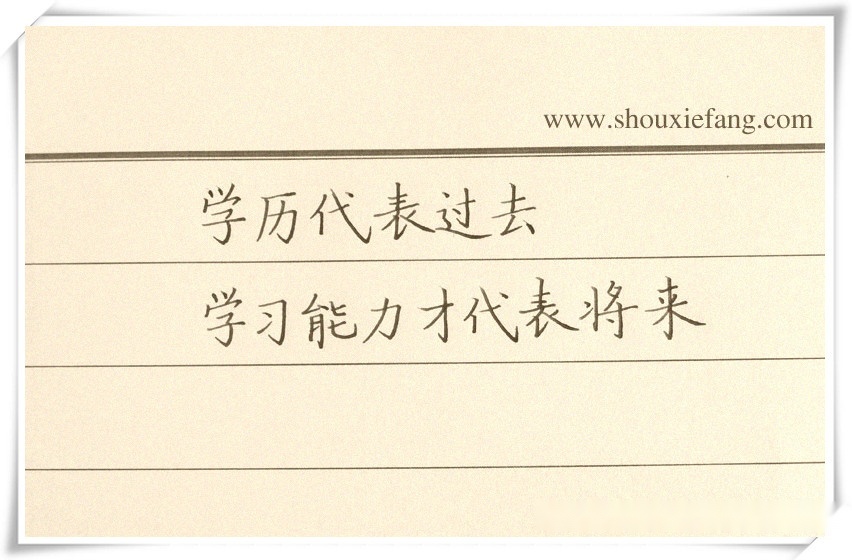 www.shouxiefang.com
学历代表过去
学习能力才代表将来